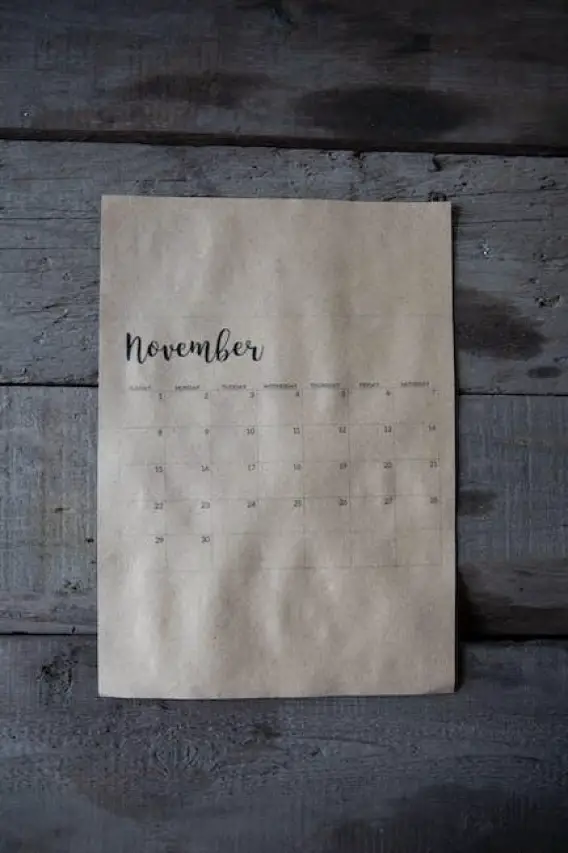 November
SUNDAY MONDAY TUESDAY WEDNESDAY THURSDAY FRIDAY SATURDAY
1 2 3 4 5 6 7
8 9 10 11 12 13 14
15 16 17 18 19 20 21
22 23 24 25 26 27 28
29 30